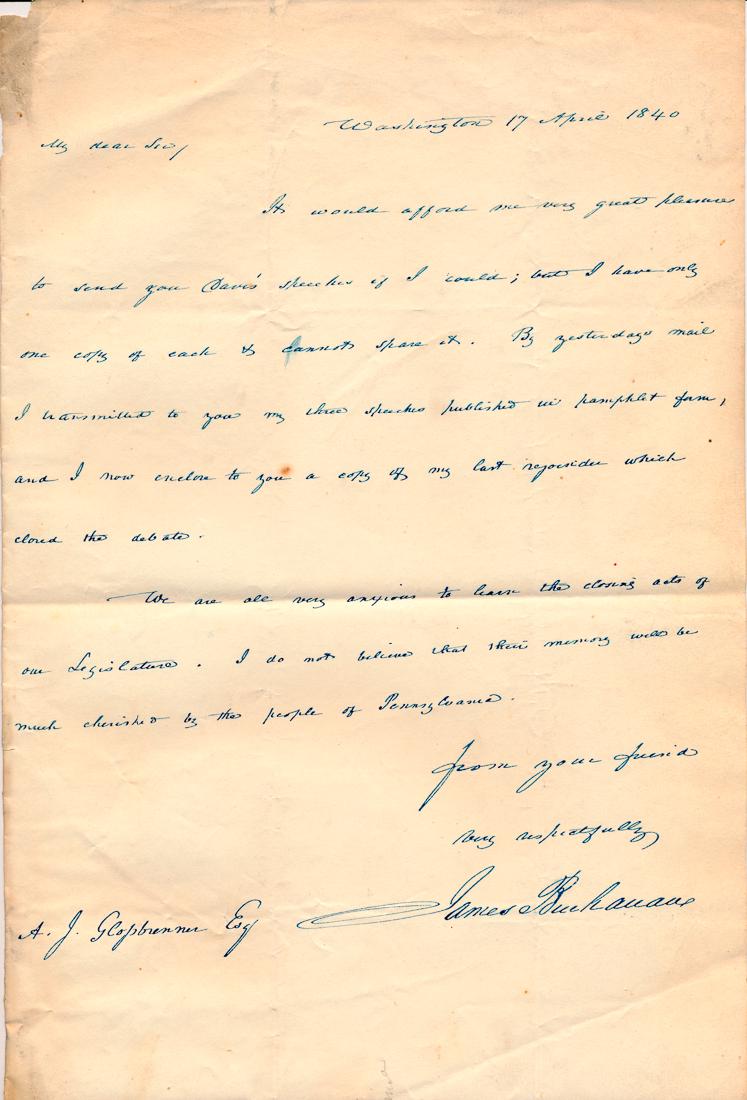 Washington 17 April 1840
My dear Sir,
It would afford me very great pleasure
to send you Davis' speeches if I could; but I have only
one copy of each & cannot spare it. By yesterdays mail
I transmitted to you my three speeches published in pamphlet form,
and I now enclose to you a copy of my last rejoinder which
closed the debate.
We are all very anxious to learn the closing acts of
our Legislature. I do not believe that their memory will be
much cherished by the people of Pennsylvania.
from your friend
very respectfully
James Buchanan
A. J. Glossbrenner Esq